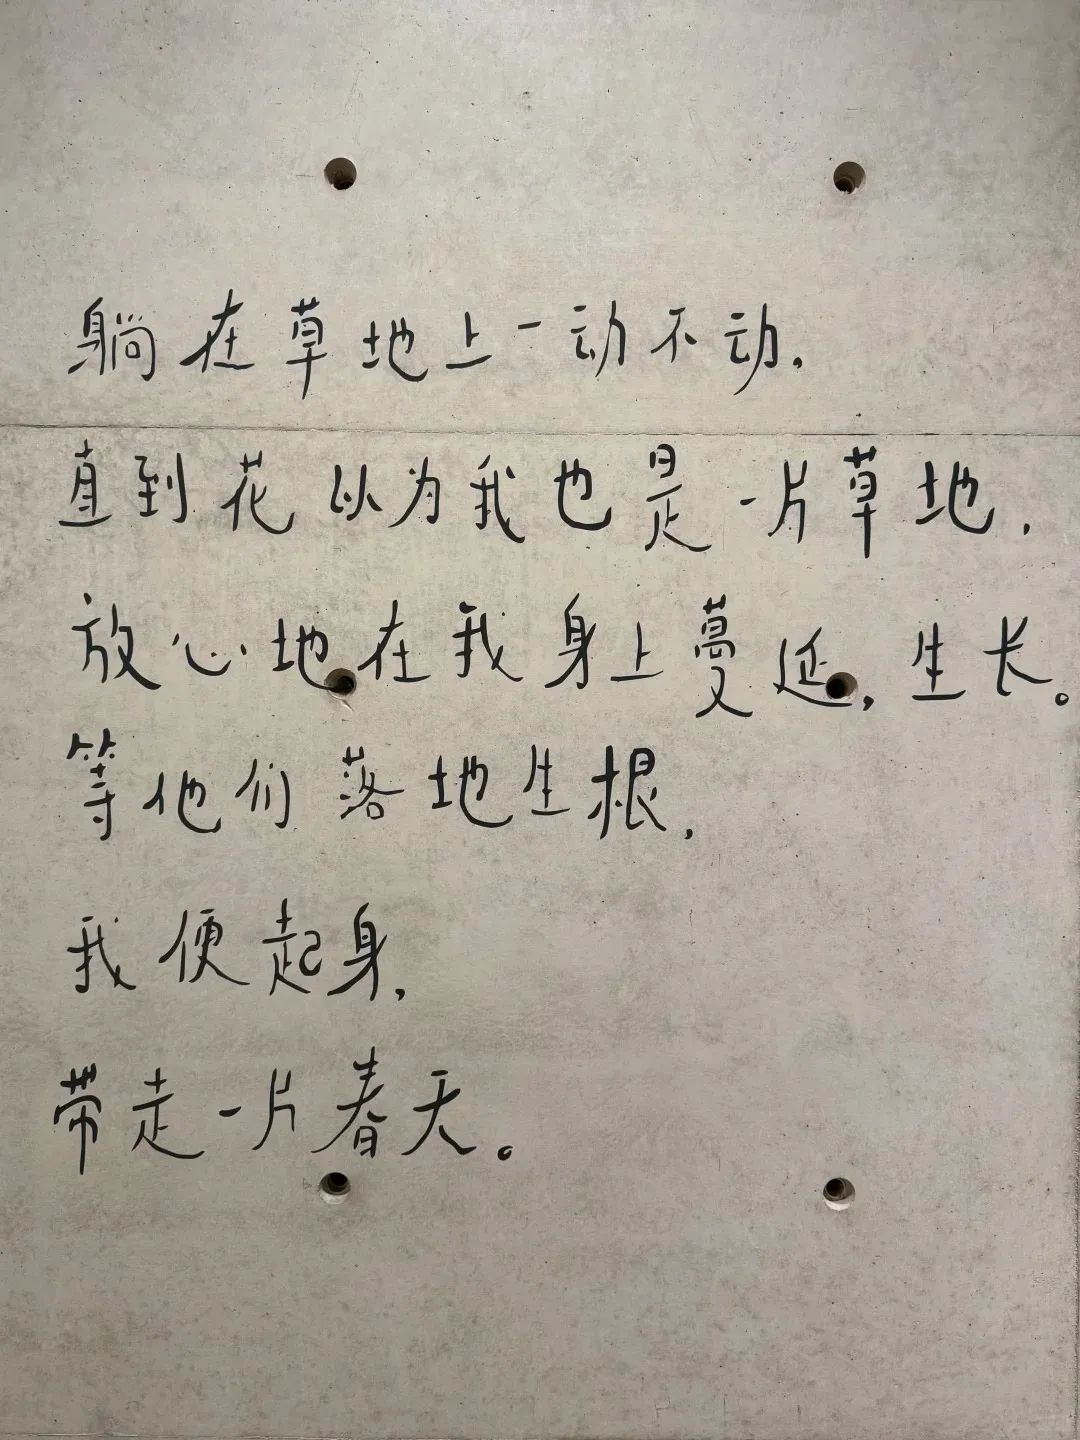 躺在草地上一动不动，
直到花以为我也是一片草地，
放心地在我身上蔓延，生长。
等他们落地生根，
我便起身，
带走一片春天。